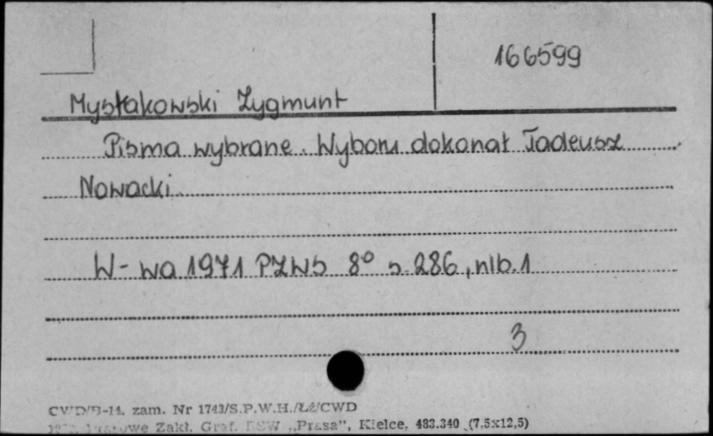 166599
Mysłakowski Zygmunt
Pisma wybrane. Wyboru dokonał Tadeusz
Nowacki.
W-wa 1971 PZWS 8° s. 286, nlb. 1
3
CWD/B-14. zam. Nr 1743/S.P.W.H./Łź/CWD
Zakł. Graf. RSW „Prasa”, Kielce, 483.340 (7,5x12,5)